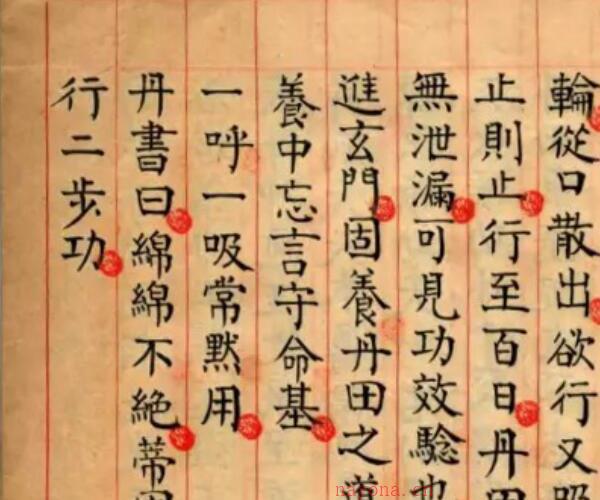 輪從口散出欲行又吸
止則止行至百日丹田
無泄漏可見功效騐也
進玄門固養丹田之道
養中忘言守命基
一呼一吸常默用
丹書曰綿綿不絶蒂
行二步功
natona.cn